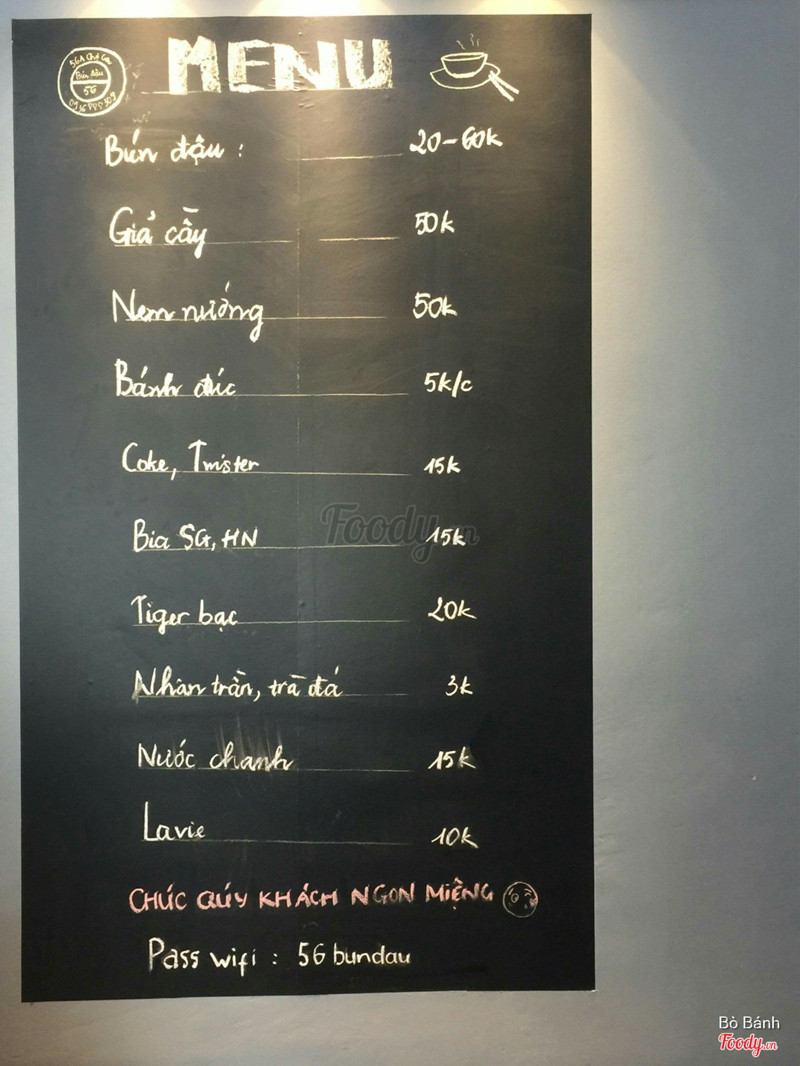 MENU
56A Chợ Gạo
Bún đậu
56
Bún đậu : 20-60k
Giả cầy 50k
Nem nướng 50k
Bánh đúc 5k/c
Coke, Twister 15k
Foody.vn
Bia SG, HN 15k
Tiger bạc 20k
Nhân trần, trà đá 3k
Nước chanh 15k
Lavie 10k
CHÚC QÚY KHÁCH NGON MIỆNG
Pass wifi : 56 bundau
Bò Bánh
Foody.vn